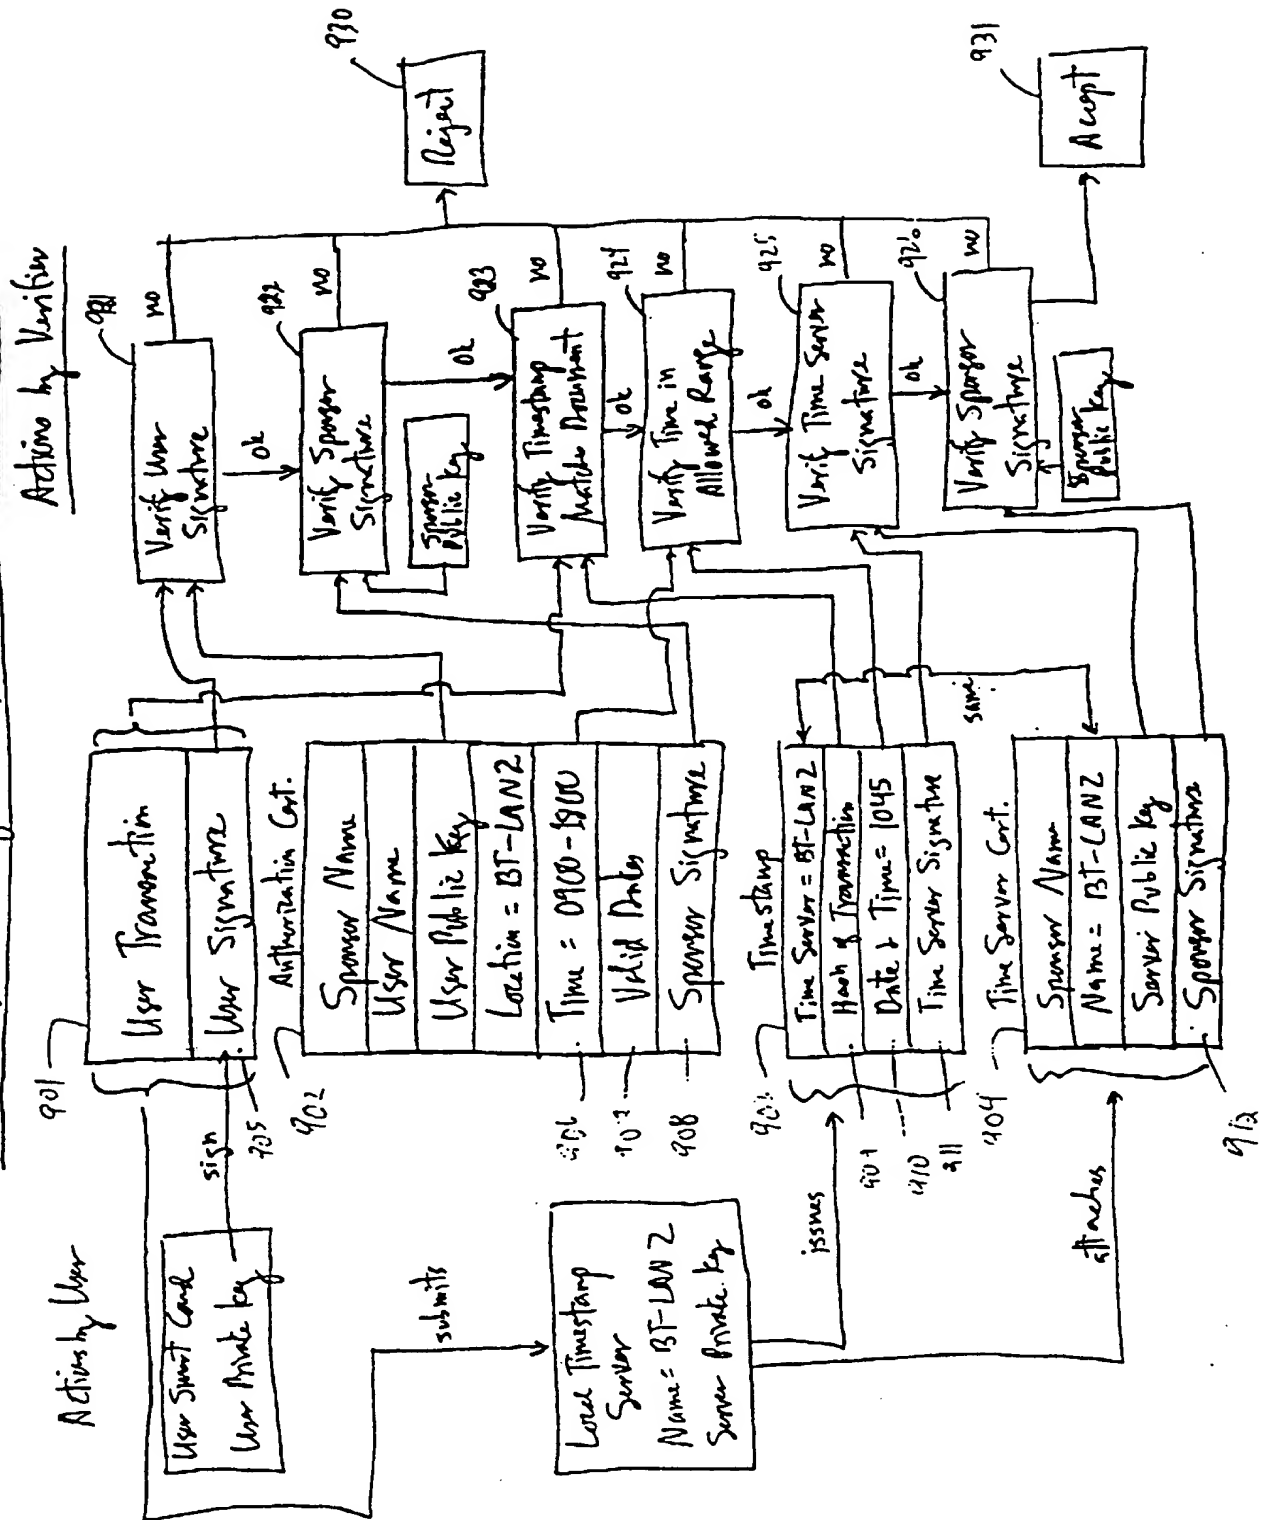 Actions by User
User Smart Card
User Private Key
sign
submits
Local Timestamp
Server
Name = BT-LAN2
Server Private Key
issues
attaches
901
User Transaction
User Signature
902
Authorization Cert.
Sponsor Name
User Name
User Public Key
Location = BT-LAN2
Time = 0900-1800
Valid Dates
Sponsor Signature
908
Timestamp
Time Server = BT-LAN2
Hash of Transaction
Date & Time = 1045
Time Server Signature
910
911
904
Time Server Cert.
Sponsor Name
Name = BT-LAN2
Server Public Key
Sponsor Signature
912
same
Actions by Verifier
921
Verify User
Signature
no
ok
922
Verify Sponsor
Signature
no
Sponsor
Public Key
ok
923
Verify Timestamp
Matches Document
no
ok
924
Verify Time in
Allowed Range
no
ok
925
Verify Time Server
Signature
no
ok
926
Verify Sponsor
Signature
no
Sponsor
Public Key
930
Reject
931
Accept